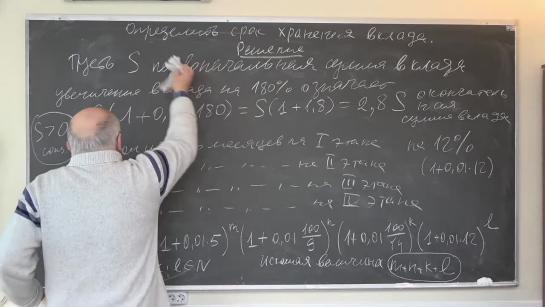 Определить срок хранения вклада.
Решение
Пусть S первоначальная сумма вклада
увеличение вклада на 180% означает
(1+0, 180) = S(1+1,8) = 2,8 S окончательная сумма вклада
S>0
месяцев на I этапа на 12%
" - " - на II этапа (1+0,01·12)
" " - " - на III этапа
" " - " - на IV этапа
1+0,01·5)^m (1+0,01 100/9)^n (1+0,01 100/14)^k (1+0,01·12)^l
, l∈N искомая величина m+n+k+l